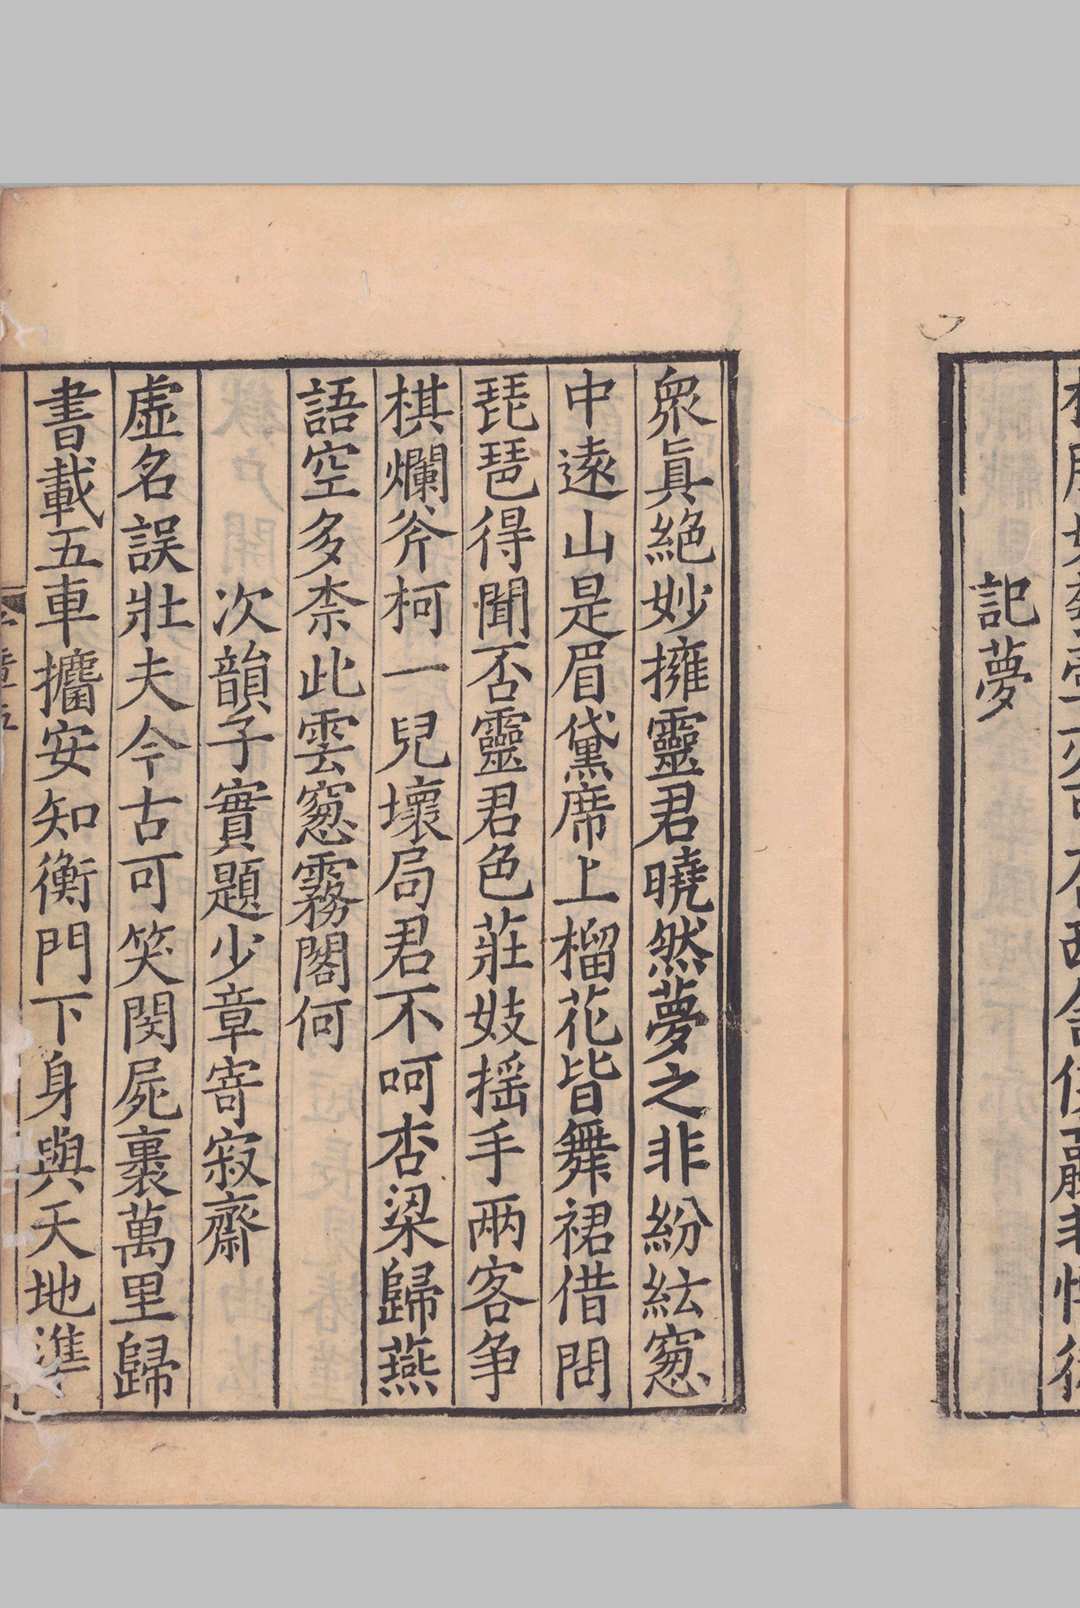 記夢
衆眞絶妙擁靈君曉然夢之非紛紜窓
中遠山是眉黛席上榴花皆舞裙借問
琵琶得聞否靈君色莊妓揺手兩客争
棋爛斧柯一兒壞局君不呵杏梁歸燕
語空多柰此雲窓霧閣何
次韻子實題少章寄寂齋
虚名誤壯夫今古可笑閔屍裹萬里歸
書載五車攟安知衡門下身與天地準